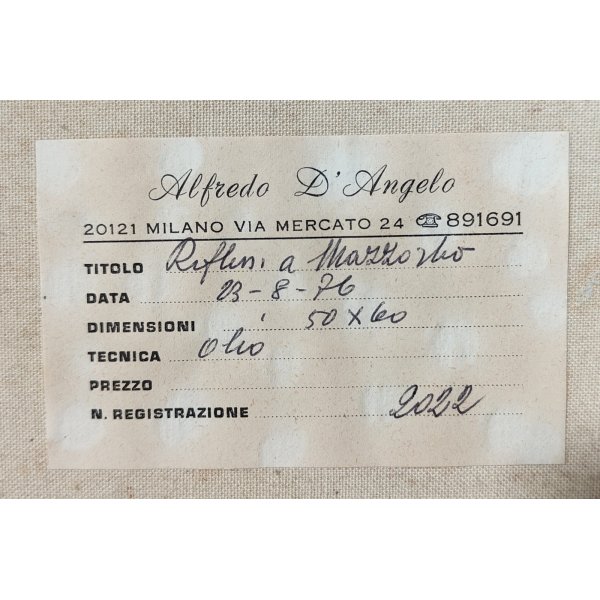 Alfredo D'Angelo
20121 MILANO VIA MERCATO 24 ☎ 891691
TITOLO Riflessi a Mazzorbo
DATA 23-8-76
DIMENSIONI 50 x 60
TECNICA Olio
PREZZO
N. REGISTRAZIONE 2022